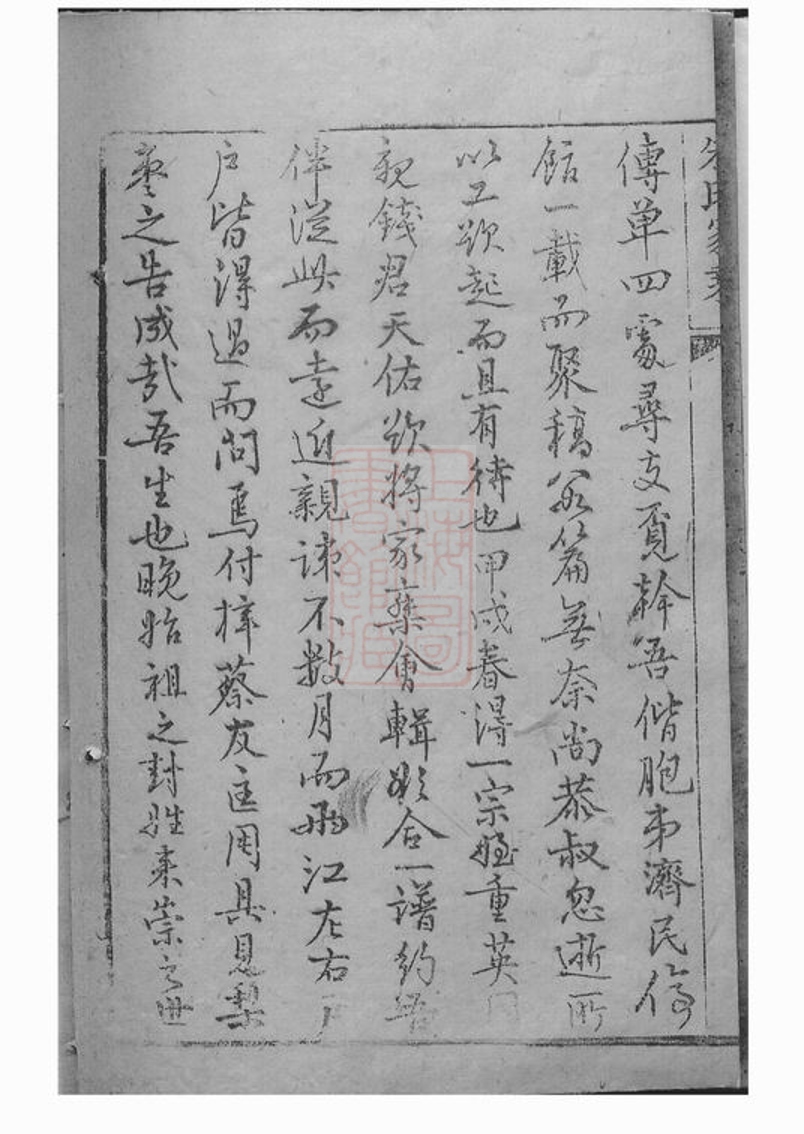 朱氏家乘
傳單四處尋支覓幹吾偕胞弟濟民停
館一載而聚稿公數篇無奈尚恭叔忽逝所
以工欲起而且有待也甲戌春得一宗姪重英同
親錢君天佑欲將家乘會輯欲合一譜約吾
伴從此而遠近親諫不數月而兩江左右戶
戶皆得過而問焉付梓蔡友匡用具見梨
棗之告成哉吾生也晚始祖之封姓來崇之世
上海圖書館藏